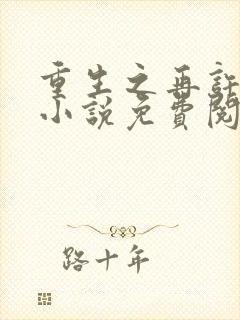 重生之再許
小説免費閱
路十年